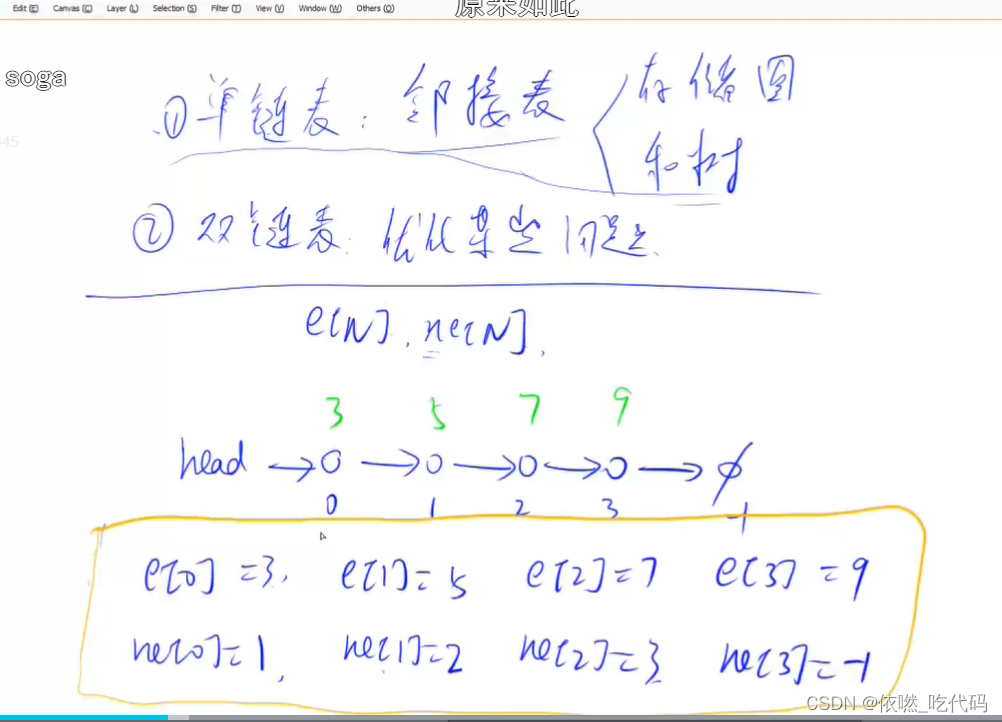 Edit (E) Canvas (C) Layer (L) Selection (S) Filter (T) View (V) Window (W) Others (O)
原来如此
soga
345
① 单链表: 邻接表 { 存储图
和树
② 双链表: 优化某些问题.
e[N], ne[N].
3 5 7 9
head → 0 → 0 → 0 → 0 → ∅
0 1 2 3 -1
e[0] =3, e[1]= 5 e[2]=7 e[3] = 9
ne[0]=1, ne[1]=2 ne[2]=3 ne[3]=-1
CSDN @依噗_吃代码